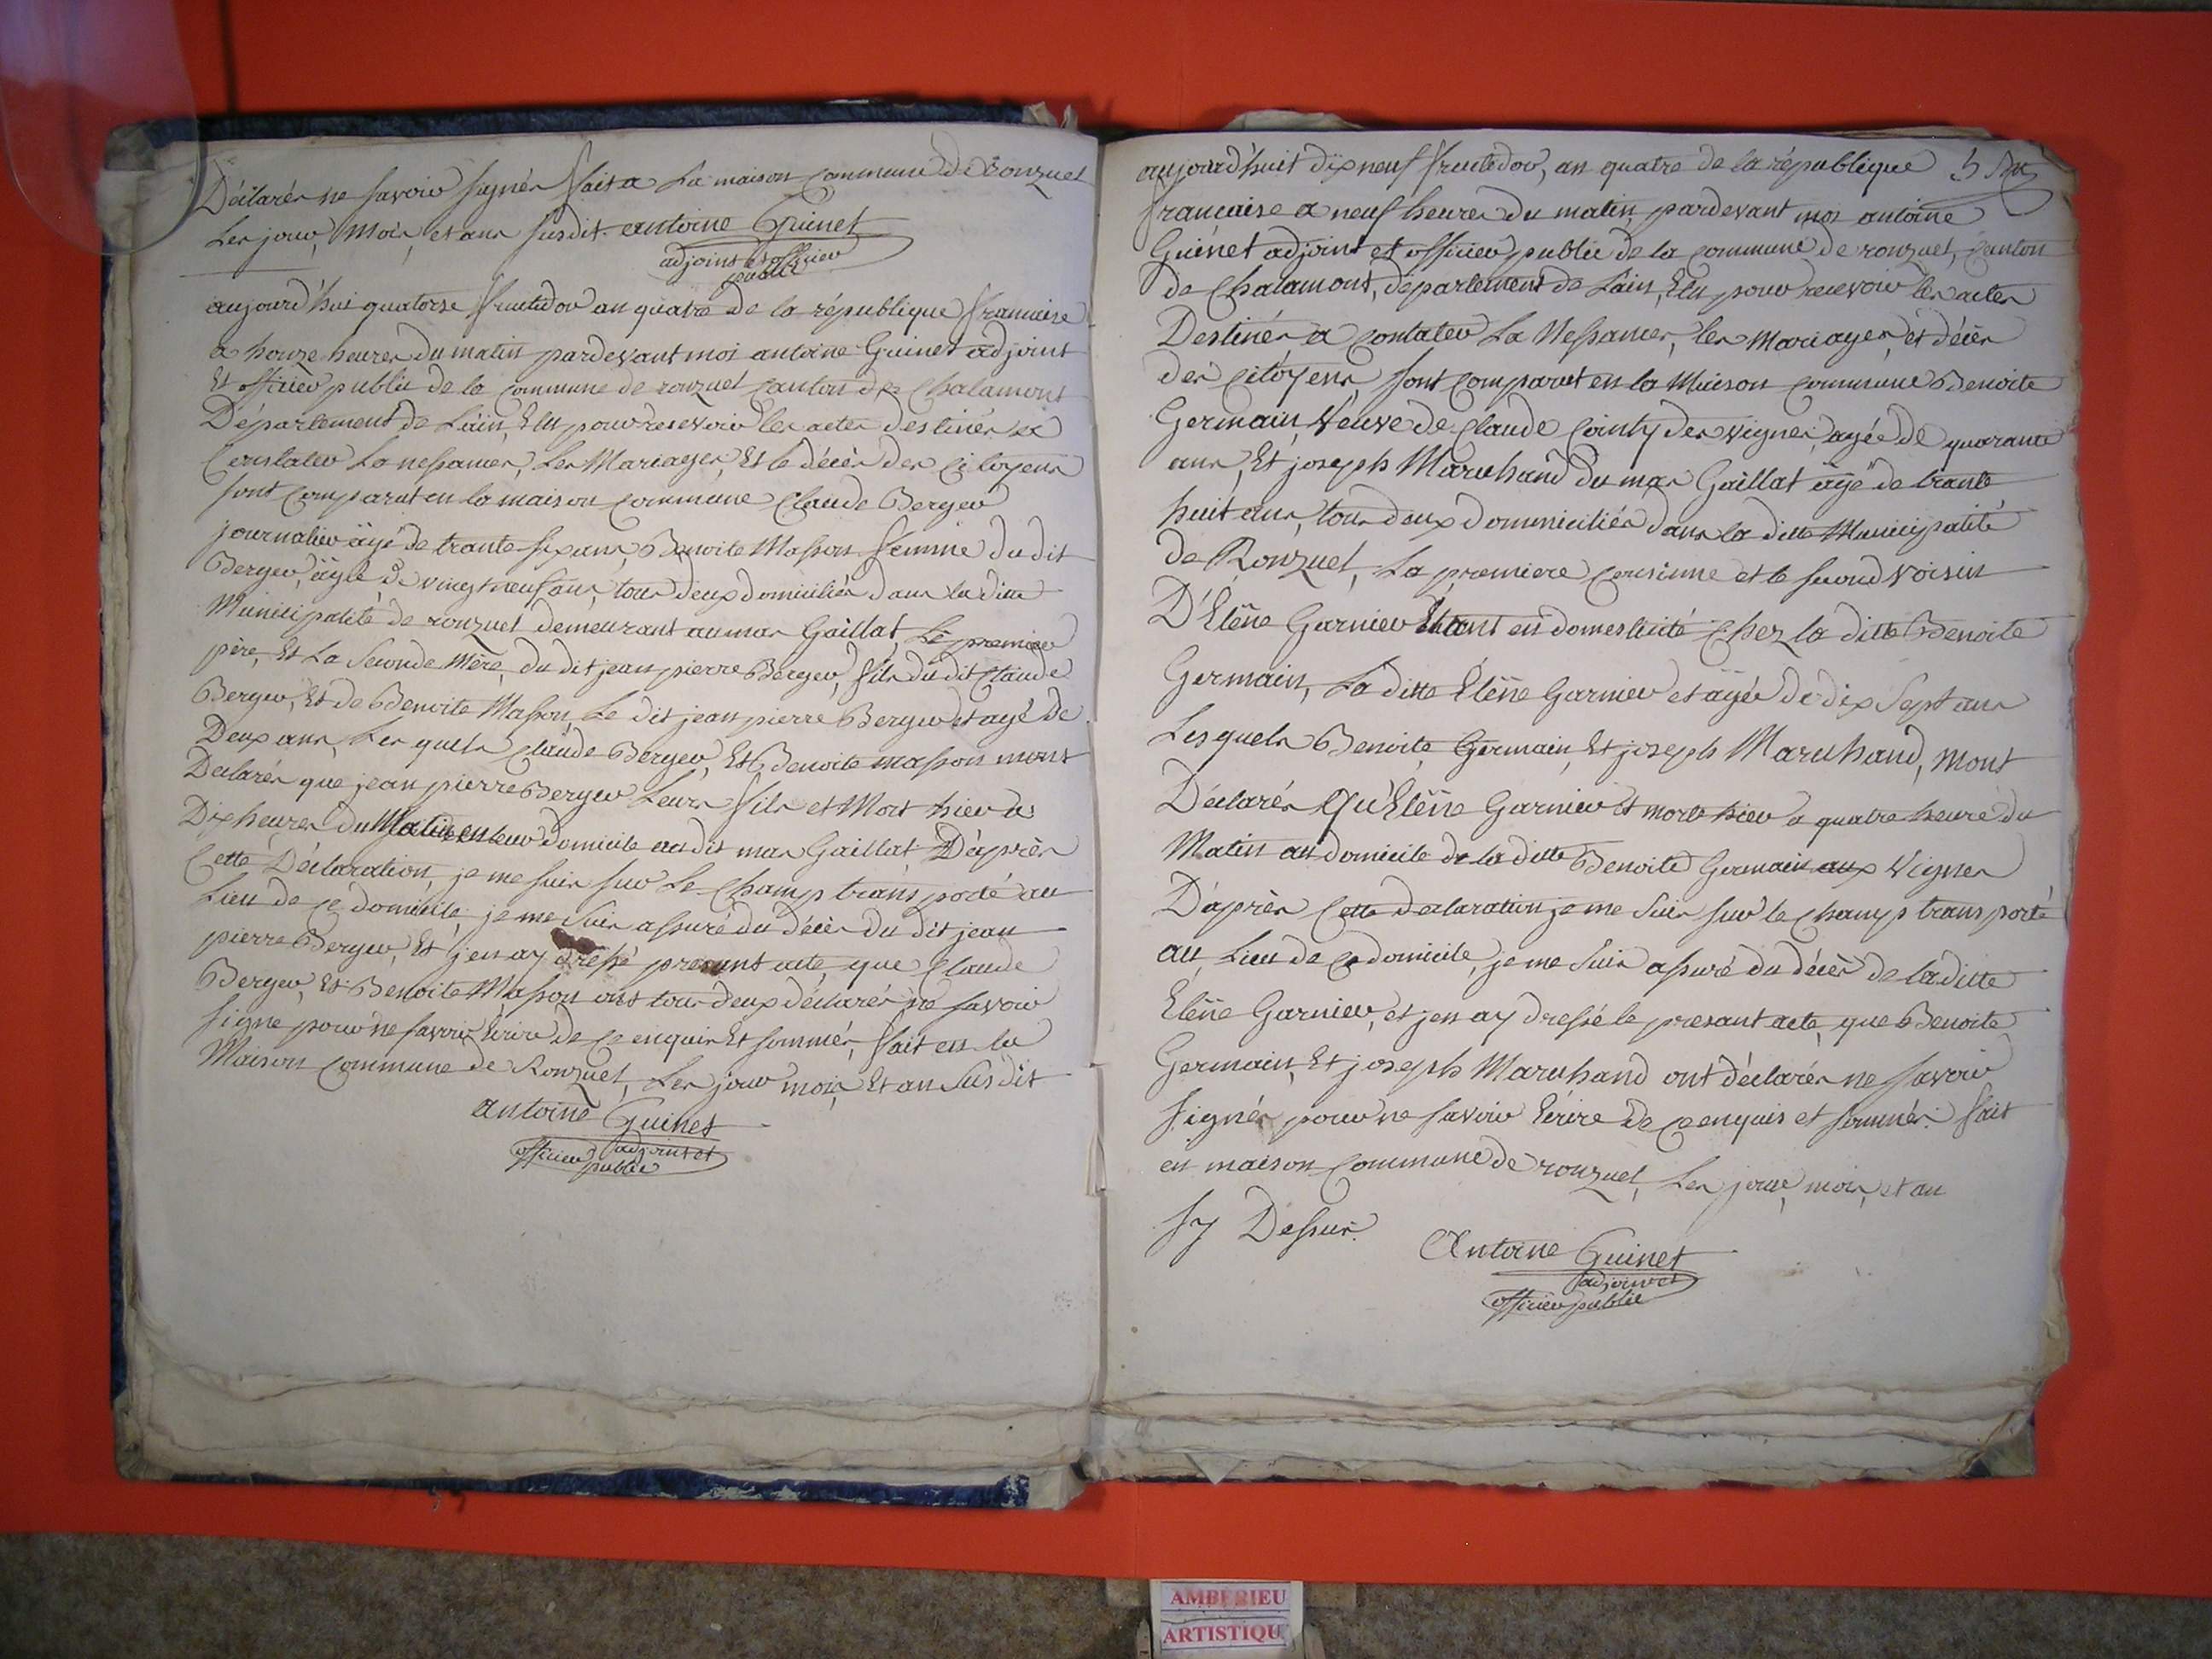 Déclarés ne savoir signér fait a La maison Commune de Ronzuel
Les jour, Mois, et ans susdit. antoine Guinet
adjoint et officier
public
aujourd'hui quatorse fructidor an quatre de la république francaise
a honze heures du matin pardevant moi antoine Guinet adjoint
Et officier public de la Commune de ronzuel canton de Chalamont
Département de Lain, Elu pour resevoir les actes destinés a
Constater La nessances, Les Mariages, Et le décès des Citoyens
sont Comparut en la maison commune Claude Berger
journalier âgé de trante six ans, Benoite Masson femme du dit
Berger, âgée de vingt neuf ans, tous deux domiciliés dans la ditte
Municipalité de ronzuel demeurant au mas Gaillat, Le premier
père, Et La Seconde Mère, du dit jean pierre Berger, fils du dit Claude
Berger, Et de Benoite Masson, Le dit jean pierre Berger et agé de
Deux ans, Les quels Claude Berger, Et Benoite masson mont
Declarés que jean pierre Berger Leurs fils et Mort hier a
Dix heures du Matin en leur domicile au dit mas Gaillat D'après
Cette Déclaration, je me suis sur Le Champ trans porté au
Lieu de ce domicile, je me suis assuré du décès du dit jean
pierre Berger, Et jen ay dressé presant acte, que Claude
Berger, Et Benoite Masson ont tous deux déclarés ne savoir
signe pour ne savoir Ecrire de ce enquis Et sommés, fait en la
Maison Commune de Ronzuel, Les jour mois, Et an Susdit
antoine Guinet
adjoint et
officier public
aujourd'huit dix neuf fructidor, an quatre de la république 5
francaise a neuf heures du matin, pardevant moi antoine
Guinet adjoint et officier public de la commune de ronzuel, Canton
de Chalamont, département de Lain, Elu pour recevoir les actes
Destinés a Contater La Nessances, les Mariages, et décès
des Citoyens sont Comparut en la Maison commune Benoite
Germain, Veuve de Claude Cointy des vignes, agée de quarante
ans, Et joseph Maruhand du mas Gaillat âgé de trante
huit ans, tous deux domiciliés dans la ditte Municipalité
de Ronzuel, La premiere Cousinne et le second voisin
D'Elêne Garnier Etant en domesticité Chez la ditte Benoite
Germain, La ditte Elêne Garnier et âgée de dix Sept ans
Lesquels Benoite Germain, Et joseph Maruhand, mont
Déclarés Qu'Elêne Garnier Et morte hier a quatre heure du
Matin au domicile de la ditte Benoite Germain aux Vignes
D'après Cette declaration je me suis sur le Champ trans porté
au Lieu de ce domicile, je me suis assuré du décès de la ditte
Elêne Garnier, et jen ay dressé le presant acte, que Benoite
Germain, Et joseph Maruhand ont déclarés ne savoir
signés pour ne savoir Ecrire de ce enquis et sommés. fait
en maison Commune de ronzuel, Les jour, mois, et an
sy Dessus.
Antoine Guinet
adjoint et
officier public
AMBERIEU
ARTISTIQU